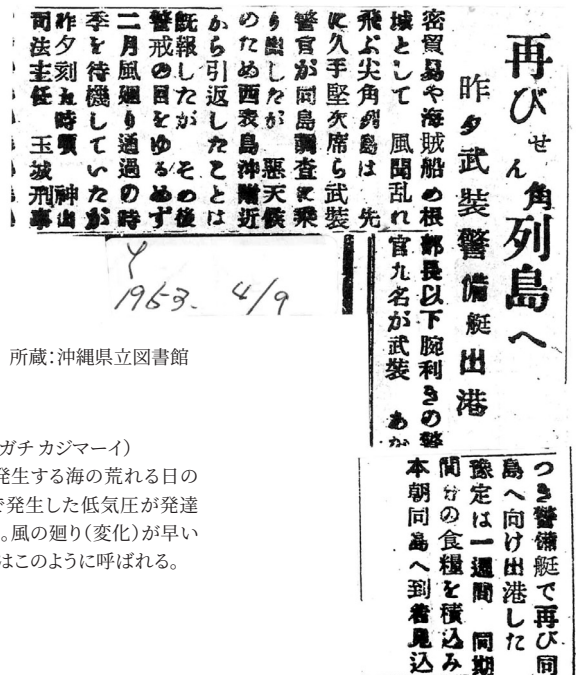 再びせん角列島へ
昨夕武装警備艇出港
密貿易や海賊船の根
城として 風聞乱れ
飛ぶ尖角列島は 先
に久手堅次席ら武装
警官が同島調査に乗
り出したが 悪天候
のため西表島沖附近
から引返したことは
既報したが その後
警戒の目をゆるめず
二月風廻り通過の時
季を待機していたが
昨夕刻九時頃 神山
司法主任 玉城刑事
部長以下腕利きの警
官九名が武装 あか
つき警備艇で再び同
島へ向け出港した
豫定は一週間 同期
間分の食糧を積込み
本朝同島へ到着見込
1953. 4/9
所蔵:沖縄県立図書館
ガチ カジマーイ)
発生する海の荒れる日の
で発生した低気圧が発達
。風の廻り(変化)が早い
はこのように呼ばれる。